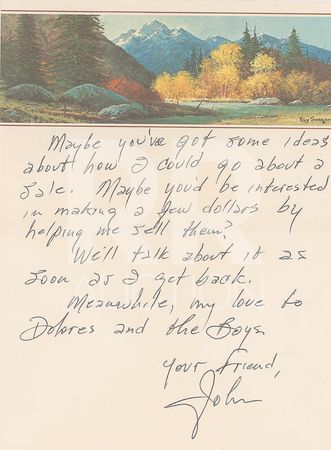 Maybe you've got some ideas
about how I could go about a
sale. Maybe you'd be interested
in making a few dollars by
helping me sell them?
We'll talk about it as
soon as I get back.
Meanwhile, my love to
Dolores and the Boys.
Your friend,
John